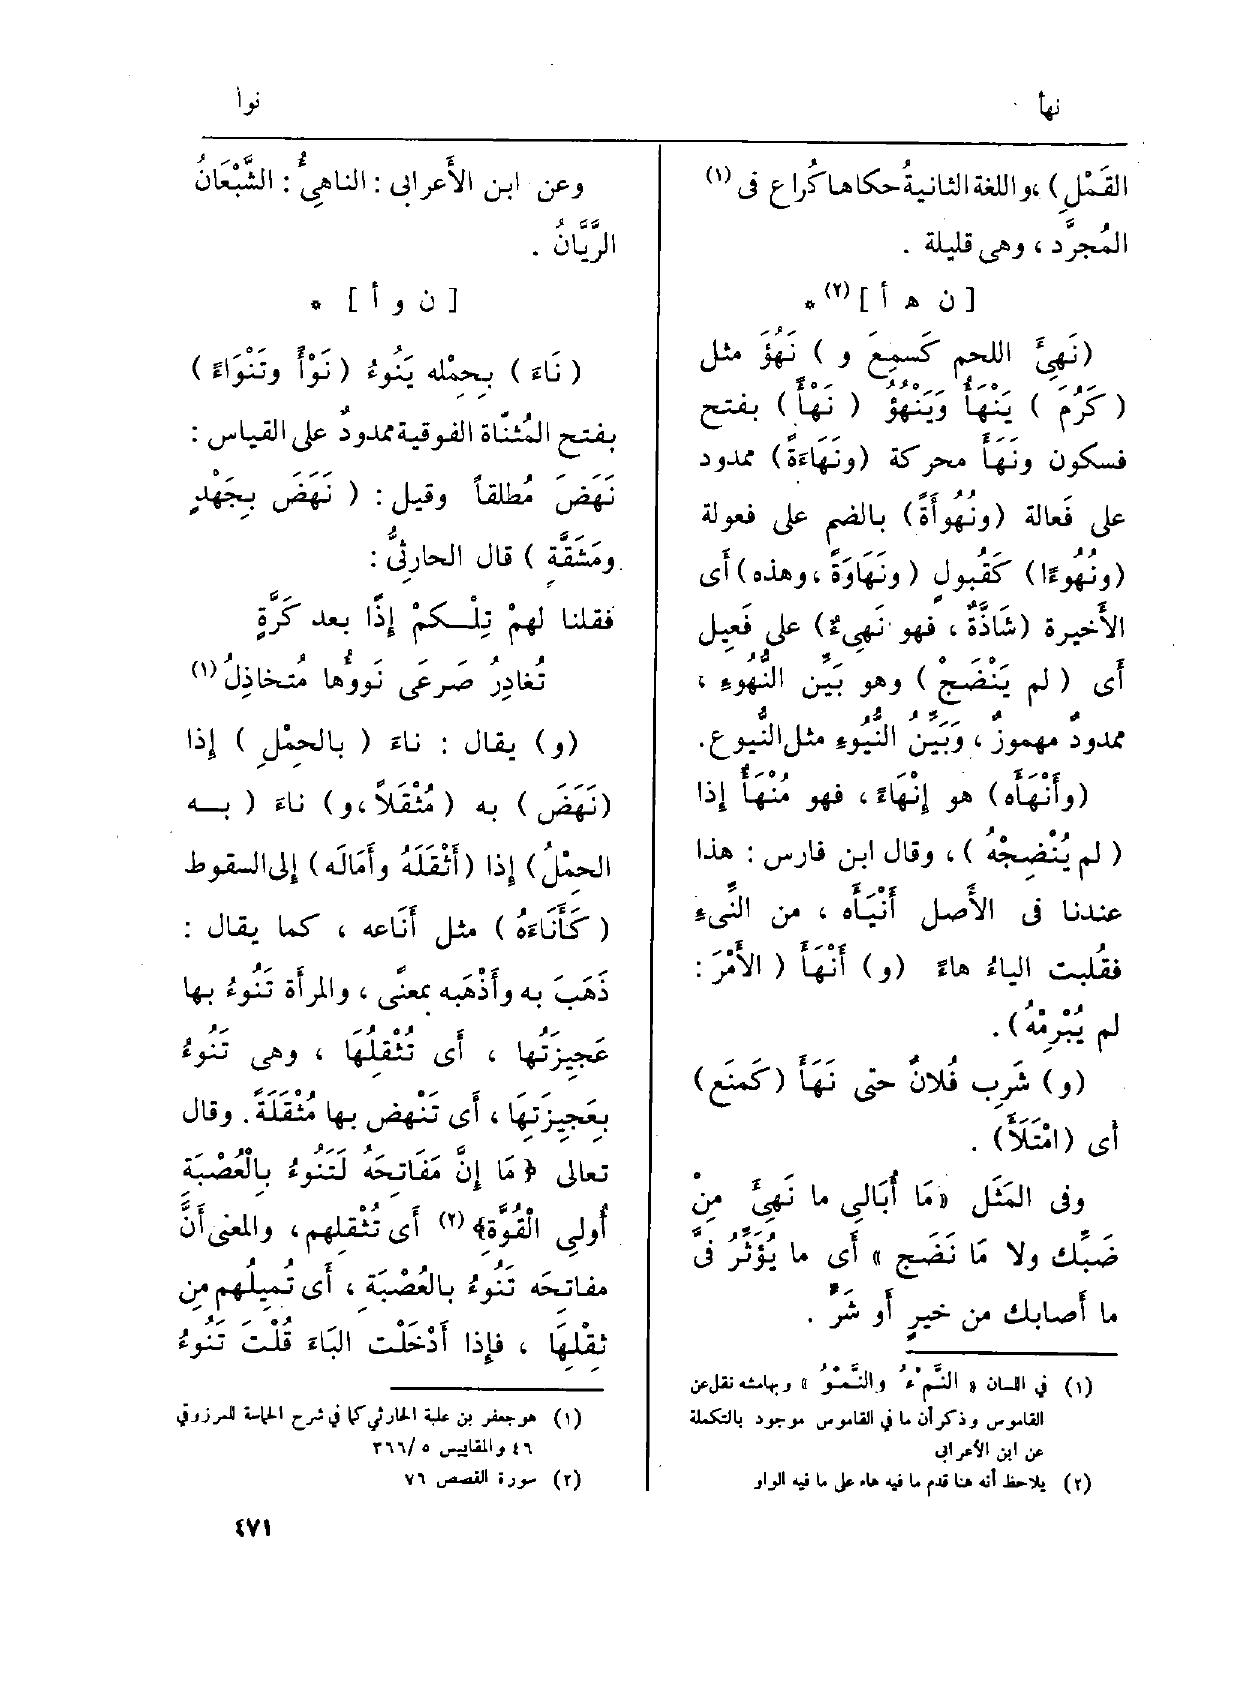 نهأ
نوأ
القَمْلِ) ،و اللغة الثانيةُ حكاها كُراع فى (١)
المُجرَّد ، وهى قليلة .
[ ن ه أ ] (٢) *
(نَهِئَ اللحم كَسمِعَ و ) نَهُؤَ مثل
( كَرُمَ ) يَنْهَأُ وَيَنْهُؤُ ( نَهْأً ) بفتح
فسكون ونَهَأً محركة (ونَهَاءَةً) ممدود
على فَعالة (ونُهُوأَةً) بالضم على فعولة
(ونُهُوءًا) كَقُبولٍ (ونَهَاوَةً ، وهذه) أى
الأَخيرة (شَاذَّةٌ ، فهو نَهِىءٌ) على فَعِيل
أى ( لم يَنْضَجْ ) وهو بَيِّن النُّهُوءِ ،
ممدودٌ مهموزٌ ، وَبَيِّنُ النُّيُوءِ مثل النُّيوع.
(وأَنْهَأَه) هو إِنْهَاءً ، فهو مُنْهَأٌ إذا
( لم يُنْضِجْهُ ) ، وقال ابن فارس : هذا
عندنا فى الأَصل أَنْيَأَه ، من النِّىءِ
فقُلبت الياءُ هاءً (و) أَنْهَأَ ( الأَمْرَ :
لم يُبْرِمْهُ).
(و) شَرِب فُلانٌ حتى نَهَأَ (كَمنَع)
أى (امْتَلَأَ) .
وفى المَثَل «مَا أُبَالِى ما نَهِئَ مِنْ
ضَبِّك ولا مَا نَضَج » أى ما يُؤَثِّرُ فىَّ
ما أَصابك من خيرٍ أَو شَرٍّ .
(١) في اللسان « النَّمْءُ والنَّمْوُ » وبهامشه نقل عن
القاموس وذكر أن ما في القاموس موجود بالتكملة
عن ابن الأعرابى
(٢) يلاحظ أنه هنا قدم ما فيه هاء على ما فيه الواو
وعن ابن الأَعرابى : الناهِئُ : الشَّبْعَانُ
الرَّيَّانُ .
[ ن و أ ] *
( نَاءَ ) بحِمْله يَنُوءُ (نَوْأً وتَنْوَاءً )
بفتح المُثنَّاة الفوقية ممدودٌ على القياس :
نَهَضَ مُطلقاً وقيل : ( نَهَضَ بِجَهْدٍ
ومَشَقَّةٍ ) قال الحارِثىُّ :
فقلنا لهمْ تِلْـكمْ إذًا بعد كَرَّةٍ
تُغادِرُ صَرعَى نَوؤُها مُتخاذِلُ (١)
(و) يقال : ناءَ ( بالحِمْلِ ) إذا
(نَهَضَ) به (مُثْقَلاً ،و) ناءَ ( بـه
الحِمْلُ) إذا (أَثْقَلَهُ وأَمَالَه) إلى السقوط
( كَأَنَاءَهُ ) مثل أَنَاعه ، كما يقال :
ذَهَبَ به وأَذْهَبه بمعنًى ، والمرأة تَنُوءُ بها
عَجِيزَتُها ، أى تُثْقِلُهَا ، وهى تَنُوءُ
بِعَجِيزَتِهَا ، أى تَنْهض بها مُثْقَلَةً . وقال
تعالى ﴿ مَا إِنَّ مَفَاتِحَهُ لَتَنُوءُ بِالْعُصْبَة
أُولِى الْقُوَّة﴾ (٢) أى تُثْقِلهم ، والمعنى أَنَّ
مفاتحه تَنُوءُ بالعُصْبَةِ ، أى تُمِيلُهم من
ثِقْلِهَا ، فإذا أَدْخَلْت البَاءَ قُلْتَ تَنُوءُ
(١) هو جعفر بن علبة الحارثي كما في شرح الحماسة للمرزوقي
٤٦ والمقاييس ٥ / ٣٦٦
(٢) سورة القصص ٧٦
٤٧١